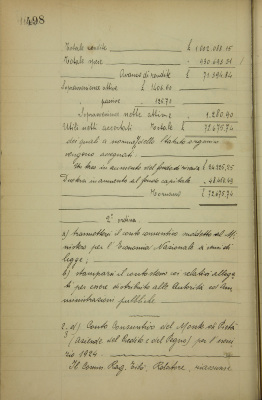 498
Totale rendite £ 1.002.038.15
Totale spese
Avanzo di rendite £ 71.394.84
Sopravvenienze attive £ 1406.60
passive 126.70
Sopravvenienze nette attive 1.280.90
Utili netti accertati Totale £ 72.675.74
dei quali a norma dello statuto organico
vengono assegnati:
in aumento del fondo di
in aumento del fondo capitale
Tornano £ 72.675.74
2° ordina
a) trasmettersi il conto consuntivo suddetto al Mi-
nistero per l'Economia Nazionale a sensi di
legge;
b) stamparsi il conto stesso coi relativi allega-
ti per essere distribuito alle Autorità ed Am-
ministrazioni pubbliche
2. d) Conto Consuntivo del Monte di Pietà
(aziende del Credito e del Pegno) per l'eserci-
zio 1924.
Il Comm. Rag. Relatore, riassume